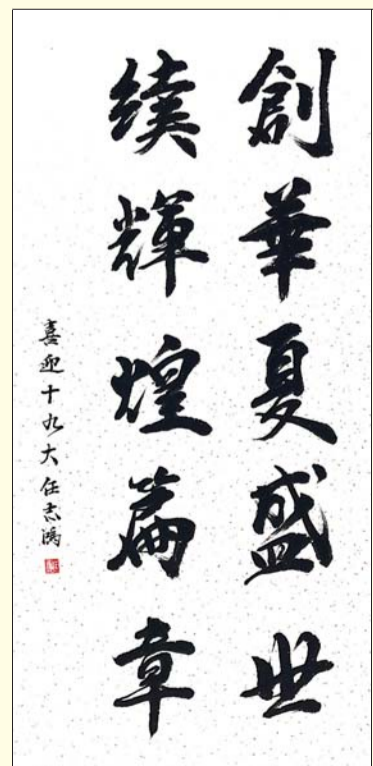 創華夏盛世
續輝煌篇章
喜迎十九大任志鴻